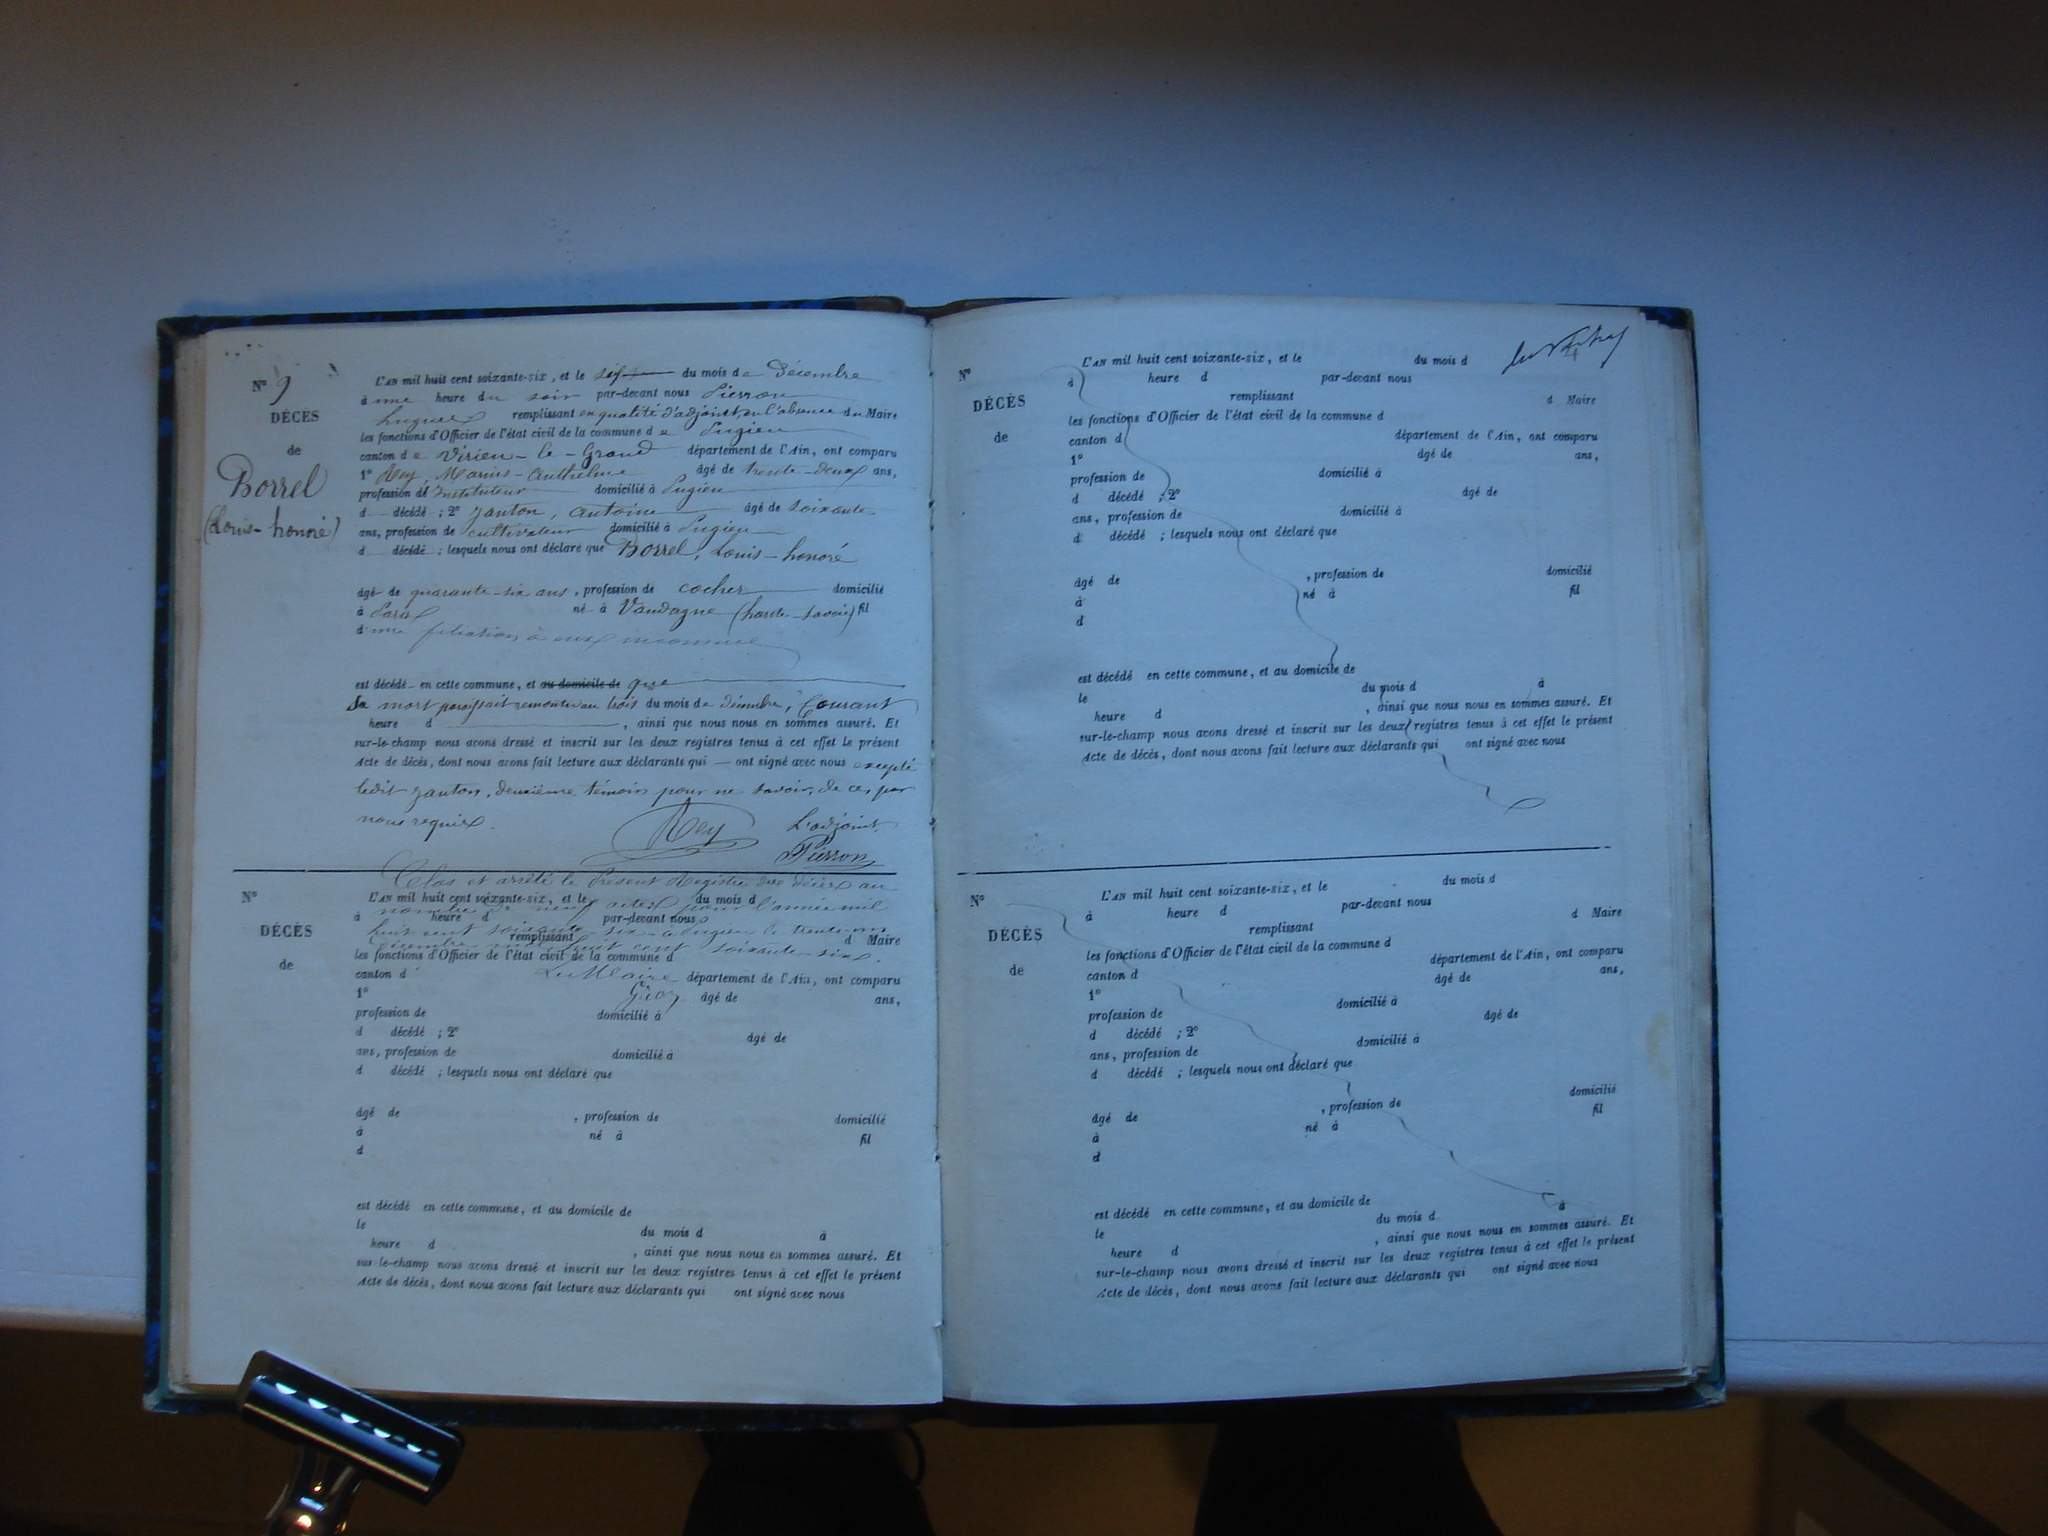 N° 9
DÉCÈS
de
Borrel
(Louis-honoré)
L'AN mil huit cent soixante-six, et le six du mois de Décembre
à une heure du soir par-devant nous Pierron
hugues remplissant en qualité d'adjoint, en l'absence du Maire
les fonctions d'Officier de l'état civil de la commune de Pugieu
canton de Virieu-le-Grand département de l'Ain, ont comparu
1° Rey, Marius-Anthelme âgé de trente-deux ans,
profession d'Instituteur domicilié à Pugieu
d décédé ; 2° Janton, Antoine âgé de soixante
ans, profession de cultivateur domicilié à Pugieu
d décédé ; lesquels nous ont déclaré que Borrel, Louis-honoré
âgé de quarante-six ans, profession de cocher domicilié
à Paris né à Vandagne (haute-Savoie) fil
d'une filiation à eux inconnue
est décédé en cette commune, et au domicile de que
Sa mort paraissait remonter au trois du mois de décembre, Courant
heure d , ainsi que nous nous en sommes assuré. Et
sur-le-champ nous avons dressé et inscrit sur les deux registres tenus à cet effet le présent
Acte de décès, dont nous avons fait lecture aux déclarants qui — ont signé avec nous excepté
ledit Janton, deuxième témoin pour ne savoir, de ce, par
nous requis.
Rey L'adjoint,
Pierron
Clos et arrêté le Présent Registre des décès au
nombre de neuf actes pour l'année mil
huit cent soixante-six à Pugieu le trente-un
décembre mil huit cent soixante six.
Le Maire
N°
DÉCÈS
de
L'AN mil huit cent soixante-six, et le du mois d
à heure d par-devant nous
remplissant d Maire
les fonctions d'Officier de l'état civil de la commune d
canton d département de l'Ain, ont comparu
1° âgé de ans,
profession de domicilié à
d décédé ; 2° âgé de
ans, profession de domicilié à
d décédé ; lesquels nous ont déclaré que
âgé de , profession de domicilié
à né à fil
d
est décédé en cette commune, et au domicile de
le du mois d à
heure d , ainsi que nous nous en sommes assuré. Et
sur-le-champ nous avons dressé et inscrit sur les deux registres tenus à cet effet le présent
Acte de décès, dont nous avons fait lecture aux déclarants qui ont signé avec nous
N°
DÉCÈS
de
L'AN mil huit cent soixante-six, et le du mois d
à heure d par-devant nous
remplissant d Maire
les fonctions d'Officier de l'état civil de la commune d
canton d département de l'Ain, ont comparu
1° âgé de ans,
profession de domicilié à
d décédé ; 2° âgé de
ans, profession de domicilié à
d décédé ; lesquels nous ont déclaré que
âgé de , profession de domicilié
à né à fil
d
est décédé en cette commune, et au domicile de
le du mois d à
heure d , ainsi que nous nous en sommes assuré. Et
sur-le-champ nous avons dressé et inscrit sur les deux registres tenus à cet effet le présent
Acte de décès, dont nous avons fait lecture aux déclarants qui ont signé avec nous
N°
DÉCÈS
de
L'AN mil huit cent soixante-six, et le du mois d
à heure d par-devant nous
remplissant d Maire
les fonctions d'Officier de l'état civil de la commune d
canton d département de l'Ain, ont comparu
1° âgé de ans,
profession de domicilié à
d décédé ; 2° âgé de
ans, profession de domicilié à
d décédé ; lesquels nous ont déclaré que
âgé de , profession de domicilié
à né à fil
d
est décédé en cette commune, et au domicile de
le du mois d à
heure d , ainsi que nous nous en sommes assuré. Et
sur-le-champ nous avons dressé et inscrit sur les deux registres tenus à cet effet le présent
Acte de décès, dont nous avons fait lecture aux déclarants qui ont signé avec nous